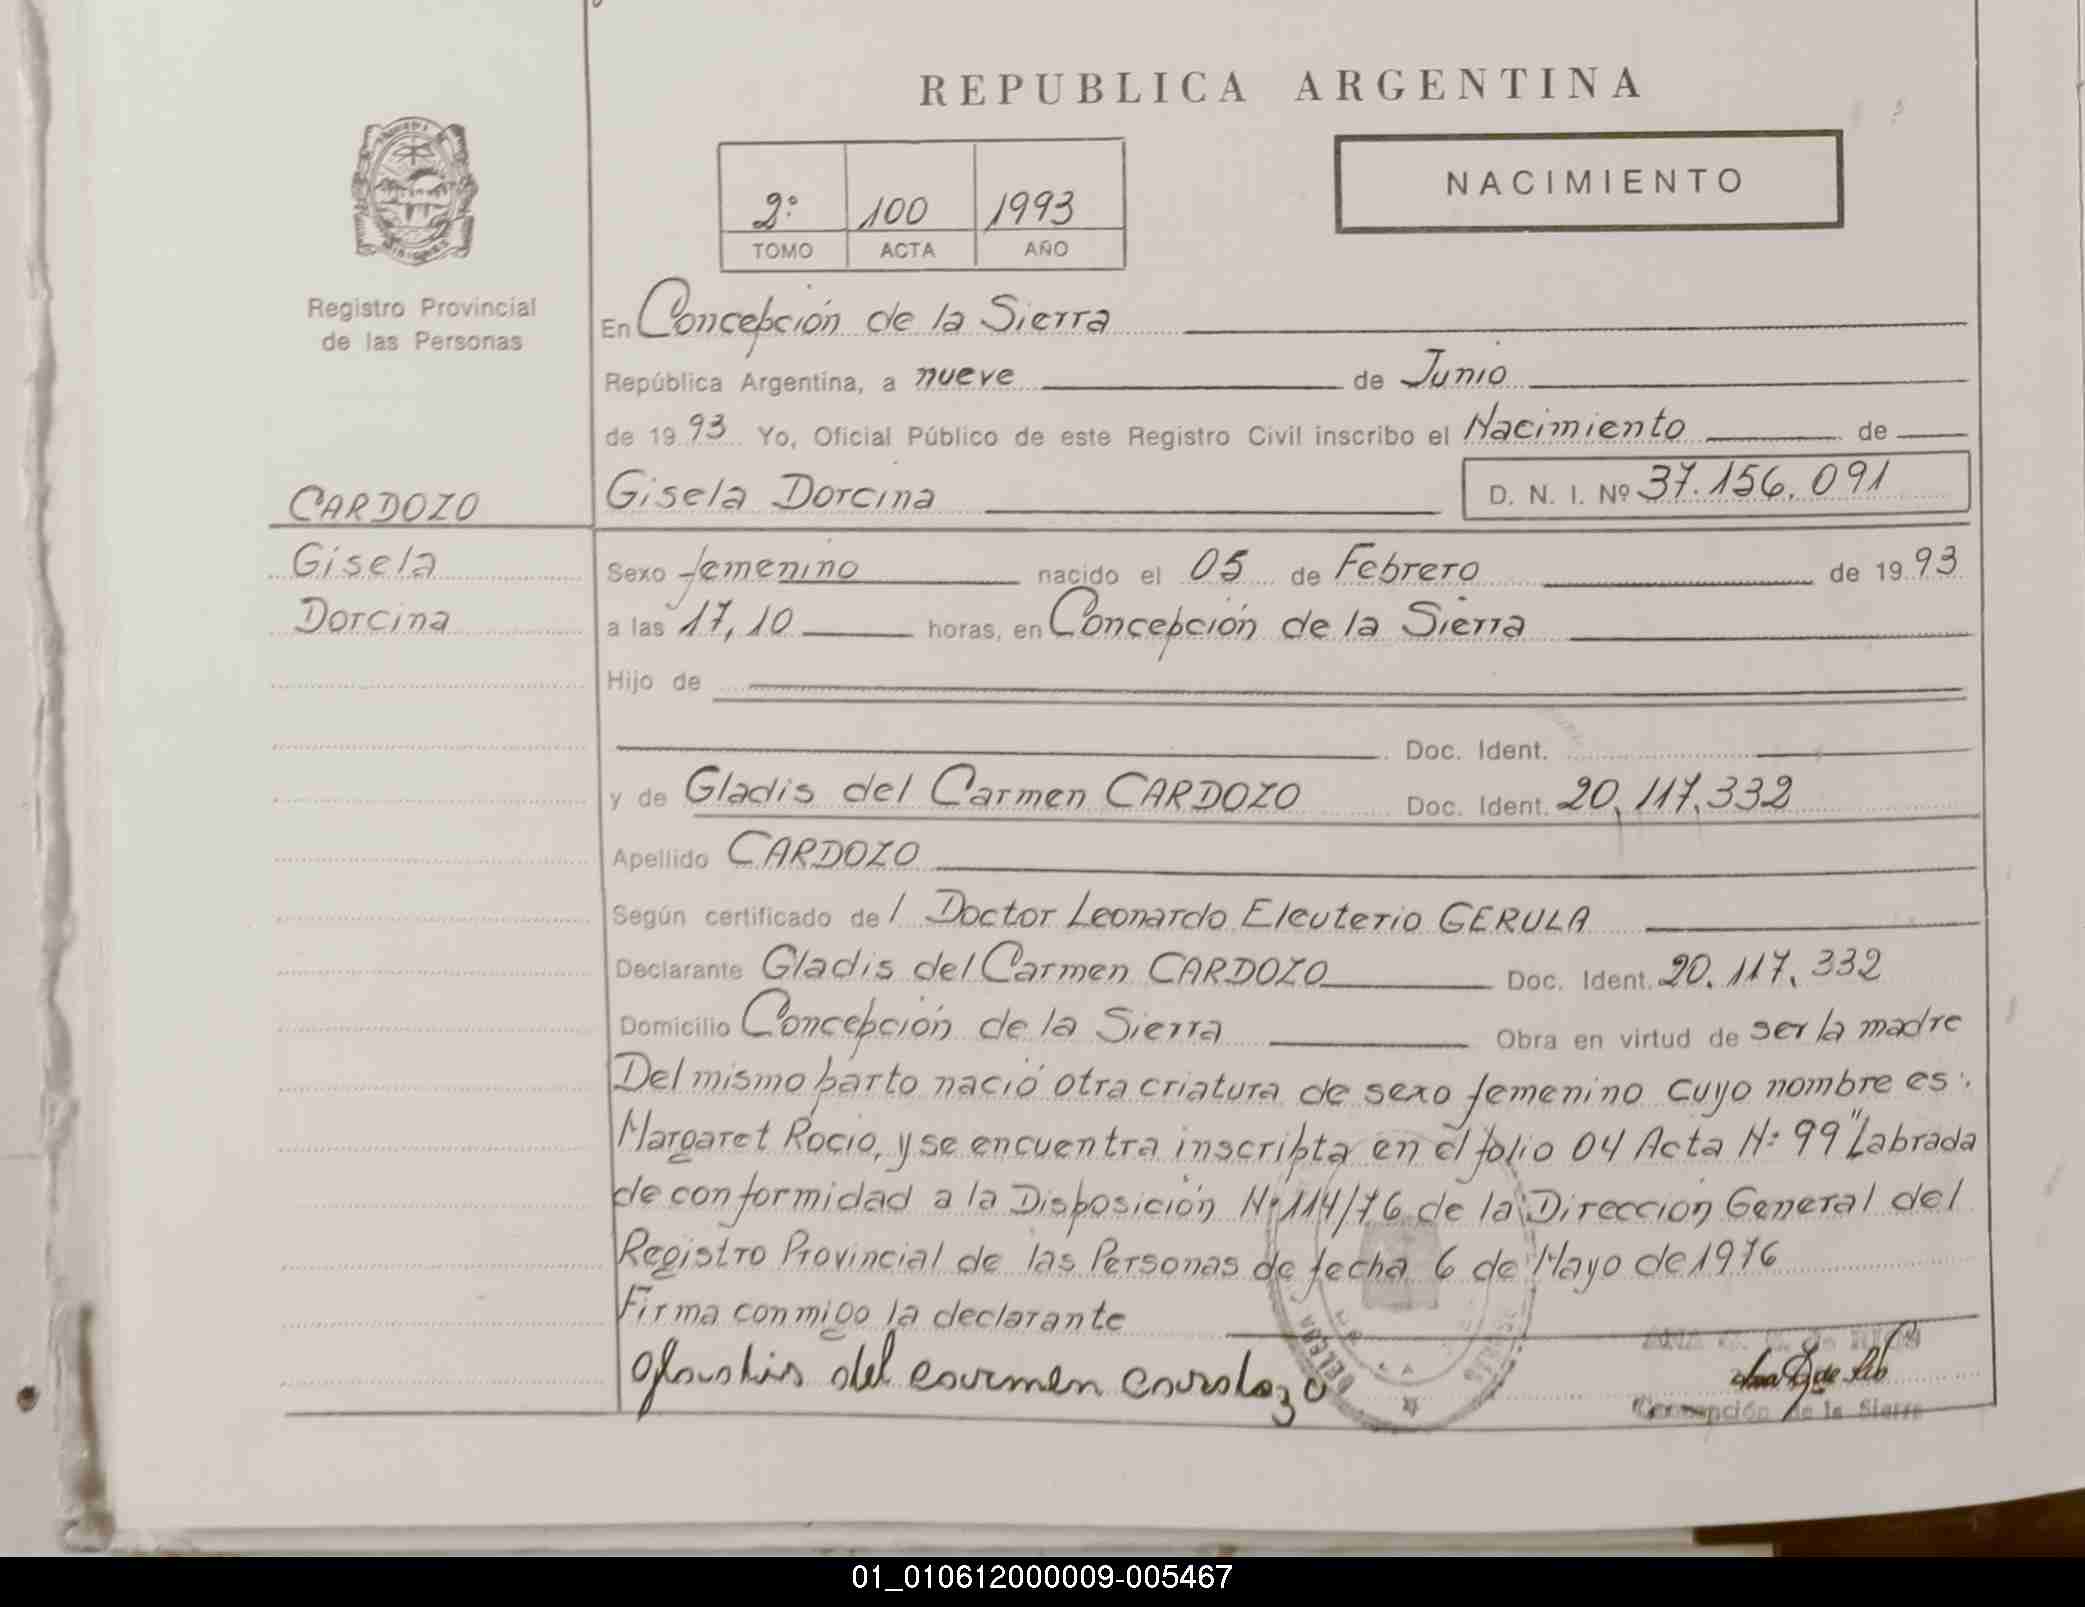 REPUBLICA ARGENTINA
NACIMIENTO
2º 100 1993
TOMO ACTA AÑO
Registro Provincial
de las Personas
En Concepción de la Sierra
República Argentina, a nueve de Junio
de 1993 Yo, Oficial Público de este Registro Civil inscribo el Nacimiento de
Gisela Dorcina D. N. I. Nº 37.156.091
CARDOZO
Gisela
Dorcina
Sexo femenino nacido el 05 de Febrero de 1993
a las 17,10 horas, en Concepción de la Sierra
Hijo de
Doc. Ident.
y de Gladis del Carmen CARDOZO Doc. Ident. 20.117.332
Apellido CARDOZO
Según certificado del Doctor Leonardo Eleuterio GERULA
Declarante Gladis del Carmen CARDOZO Doc. Ident. 20.117.332
Domicilio Concepción de la Sierra Obra en virtud de ser la madre
Del mismo parto nació otra criatura de sexo femenino cuyo nombre es:
Margaret Rocio, y se encuentra inscripta en el folio 04 Acta Nº 99" Labrada
de conformidad a la Disposición Nº 114/76 de la Dirección General del
Registro Provincial de las Personas de fecha 6 de Mayo de 1976
Firma conmigo la declarante
Gladis del carmen cardozo
Concepción de la Sierra
01_010612000009-005467